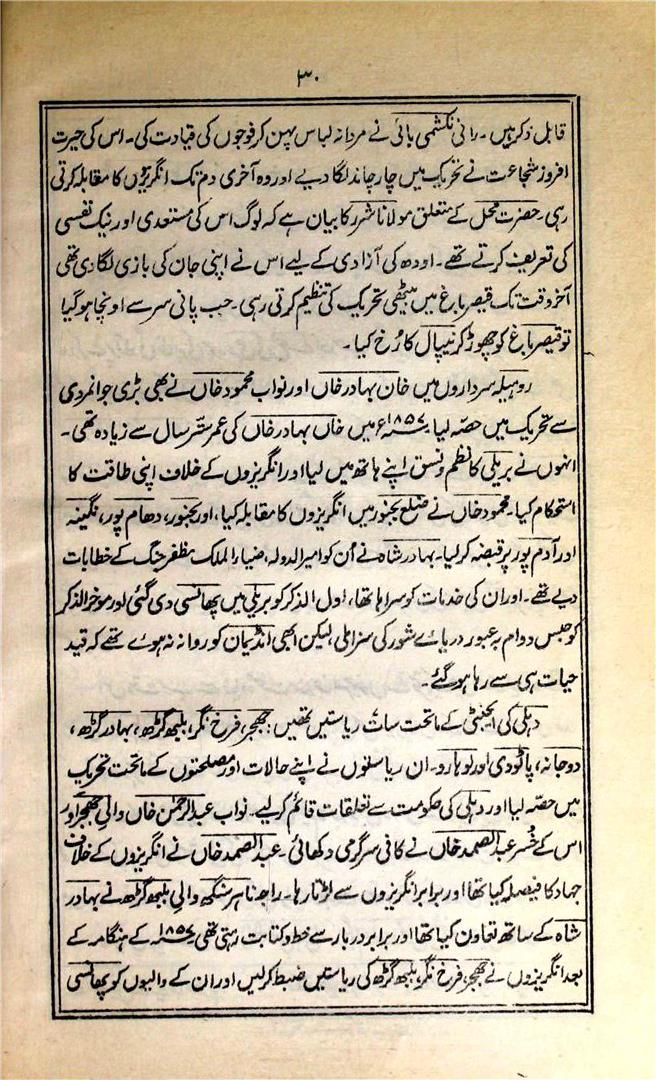 ۳۰
قابل ذکر ہیں۔ رانی لکشمی بائی نے مردانہ لباس پہن کر فوجوں کی قیادت کی۔ اس کی حیرت
افروز شجاعت نے تحریک میں چار چاند لگا دیے اور وہ آخری دم تک انگریزوں کا مقابلہ کرتی
رہی۔ حضرت محل کے متعلق مولانا شرر کا بیان ہے کہ لوگ اس کی مستعدی اور نیک نفسی
کی تعریف کرتے تھے۔ اودھ کی آزادی کے لیے اس نے اپنی جان کی بازی لگا دی تھی
آخر وقت تک قیصر باغ میں بیٹھی تحریک کی تنظیم کرتی رہی۔ جب پانی سر سے اونچا ہو گیا
تو قیصر باغ کو چھوڑ کر نیپال کا رُخ کیا۔
روہیلہ سرداروں میں خان بہادر خاں اور نواب محمود خاں نے بھی بڑی جوانمردی
سے تحریک میں حصہ لیا۔ ۱۸۵۷ء میں خاں بہادر خاں کی عمر ستّر سال سے زیادہ تھی۔
انہوں نے بریلی کا نظم و نسق اپنے ہاتھ میں لیا اور انگریزوں کے خلاف اپنی طاقت کا
استحکام کیا۔ محمود خاں نے ضلع بجنور میں انگریزوں کا مقابلہ کیا، اور بجنور، دھام پور، نگینہ
اور آدم پور پر قبضہ کر لیا۔ بہادر شاہ نے اُن کو امیر الدولہ، ضیاء الملک مظفر جنگ کے خطابات
دیے تھے۔ اور ان کی خدمات کو سراہا تھا، اول الذکر کو بریلی میں پھانسی دی گئی اور موخر الذکر
کو حبس دوام بہ عبور دریاے شور کی سزا ملی، لیکن ابھی انڈیمان کو روانہ نہ ہوے تھے کہ قید
حیات ہی سے رہا ہو گئے۔
دہلی کی ایجنٹی کے ماتحت سات ریاستیں تھیں: جھجر، فرخ نگر، بلبھ گڑھ، بہادر گڑھ،
دوجانہ، پاٹودی اور لوہارو۔ ان ریاستوں نے اپنے حالات اور مصلحتوں کے ماتحت تحریک
میں حصہ لیا اور دہلی کی حکومت سے تعلقات قائم کر لیے۔ نواب عبدالرحمٰن خاں والیِ جھجر اور
اس کے خُسر عبدالصمد خاں نے کافی سرگرمی دکھائی۔ عبدالصمد خاں نے انگریزوں کے خلاف
جہاد کا فیصلہ کیا تھا اور برابر انگریزوں سے لڑتا رہا۔ راجہ ناہر سنگھ والیِ بلبھ گڑھ نے بہادر
شاہ کے ساتھ تعاون کیا تھا اور برابر دربار سے خط و کتابت رہتی تھی۔ ۱۸۵۷ء کے ہنگامہ کے
بعد انگریزوں نے جھجر، فرخ نگر، بلبھ گڑھ کی ریاستیں ضبط کر لیں اور ان کے والیوں کو پھانسی